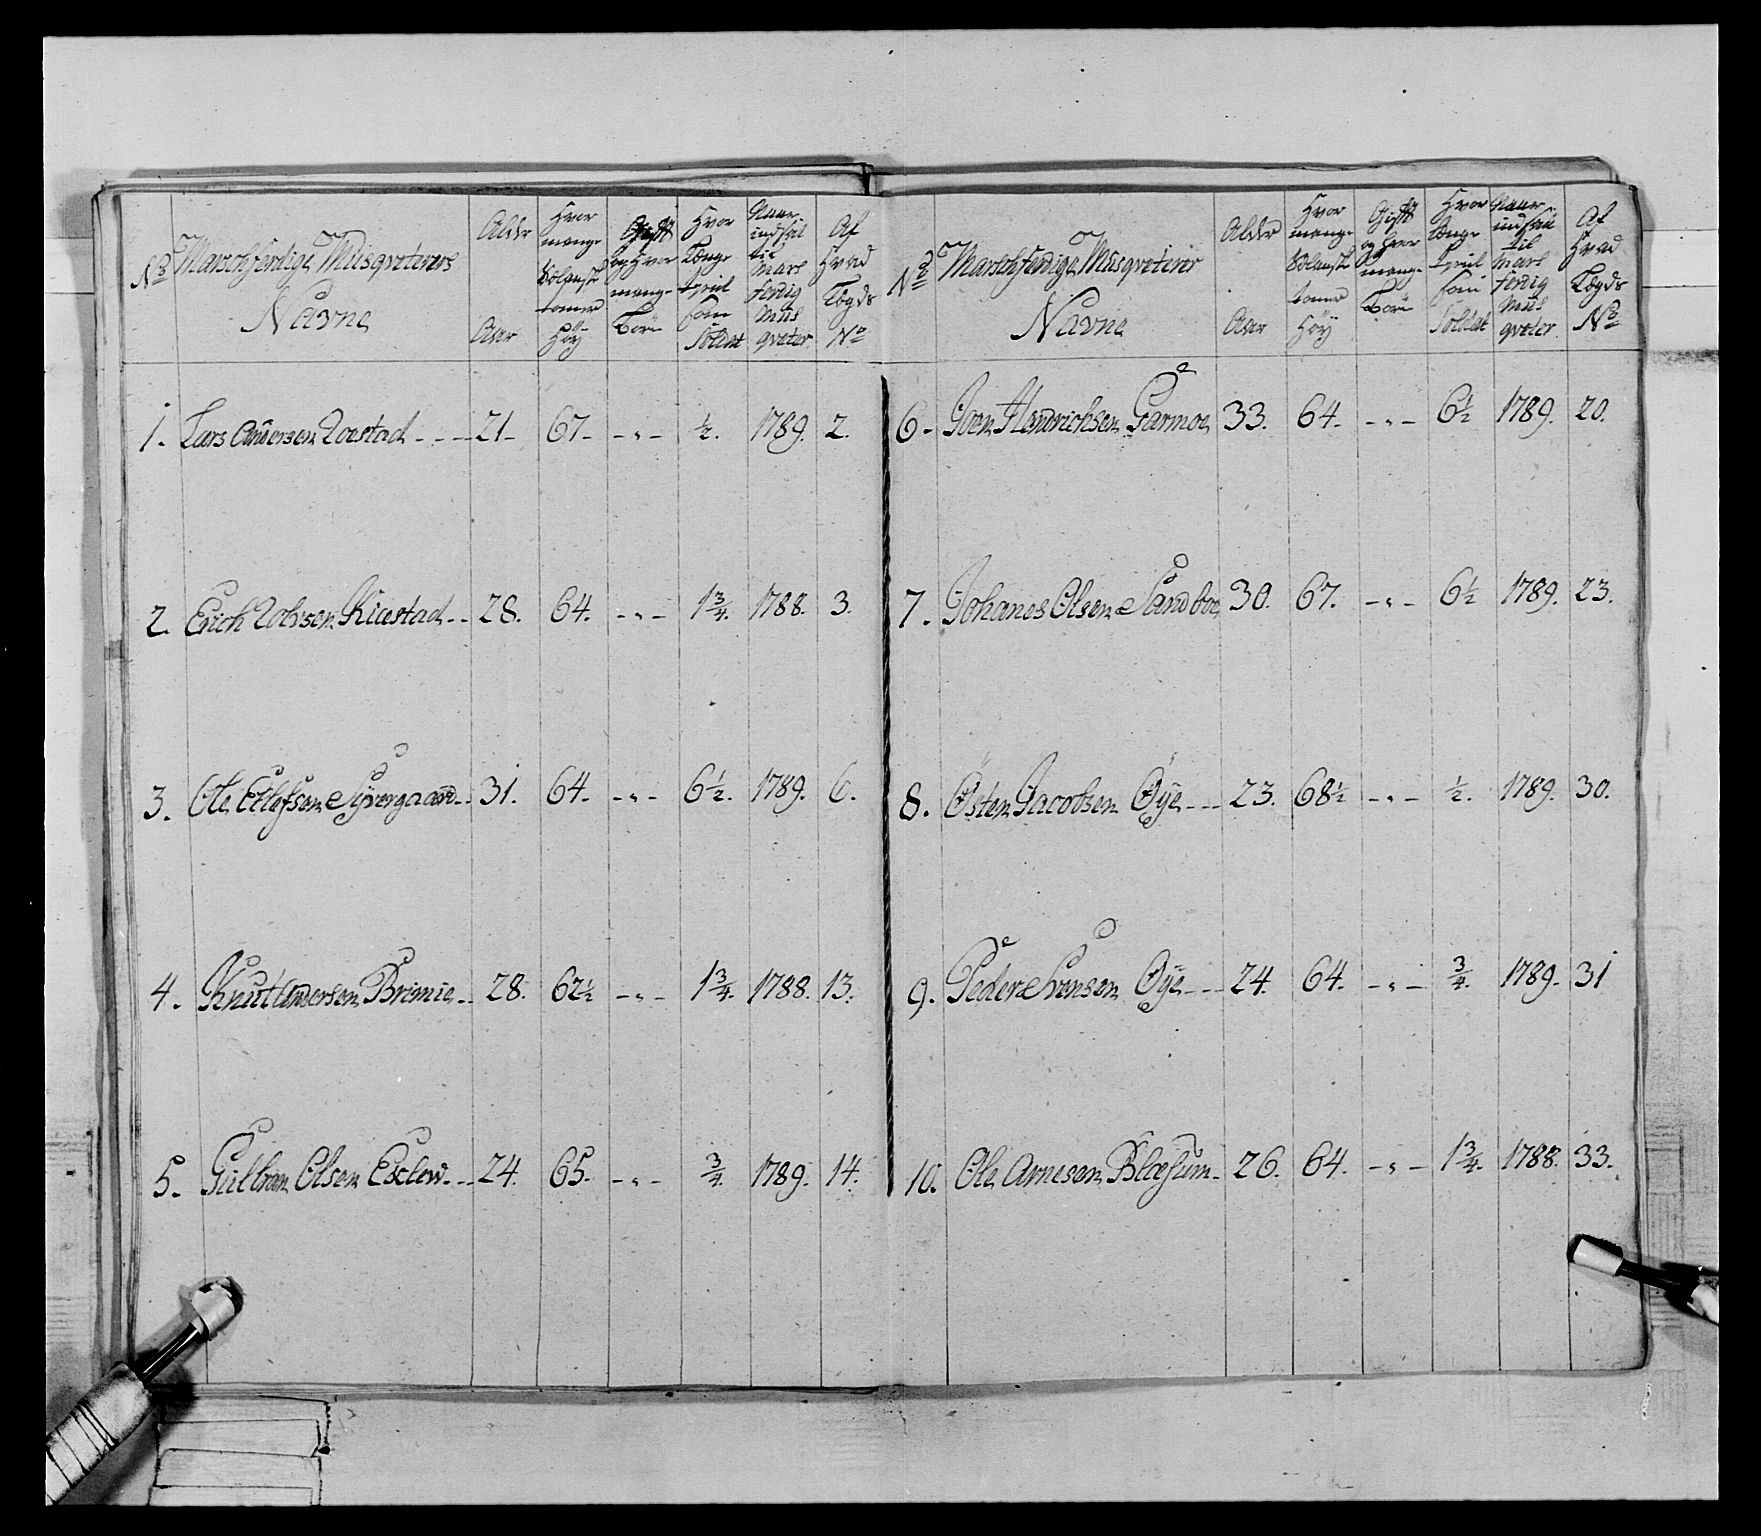 No
Marschferdige Musqveterers
Navne
Alder
Aar
Hvor
mange
tomer
höy
Gift
og Hvor
mange
Börn
Hvor
Længe
tient
som
Soldat
Naar
indfal
til
Mars
ferdig
Mus
qveter.
Af
Hvad
Lægds
No
1. Lars Andersen 21 67 - " - ½. 1789. 2.
2. Erich 28. 64. - " - 1¾. 1788. 3.
3. Ole Ellefsen 31. 64. - " - 6½. 1789. 6.
4. Knut Andersen Brimie 28. 62½ - " - 1¾. 1788. 13.
5. Gulbran Olsen 24. 65. - " - ¾. 1789. 14.
No
Marschferdige Musqveterer
Navne
Alder
Aar
Hvor
mange
tomer
höy
Gift
og Hvor
mange
Börn
Hvor
Længe
tient
som
Soldat
Naar
indfal
til
Mars
ferdig
Mus
qveter.
Af
Hvad
Lægds
No
6. Iver Hendrichsen Garmoe 33. 64. - " - 6½ 1789. 20.
7. Johanes Olsen Sandboe 30. 67. - " - 6½ 1789. 23.
8. Östen Jacobsen Öye 23. 68½ - " - ½. 1789. 30.
9. Peder Svensen Öye 24. 64. - " - ¾. 1789. 31
10. Ole Arnesen 26. 64. - " - 1¾. 1788. 33.